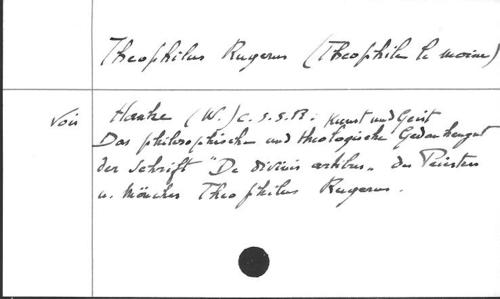 Theophilus Rugerus (Theophile le moine)
Voir Hanke (W.) c.s.s.R. : Kunst und Geist
Das philosophische und theologische Gedankengut
der Schrift "De diversis artibus" des Priesters
u. Mönches Theophilus Rugerus.